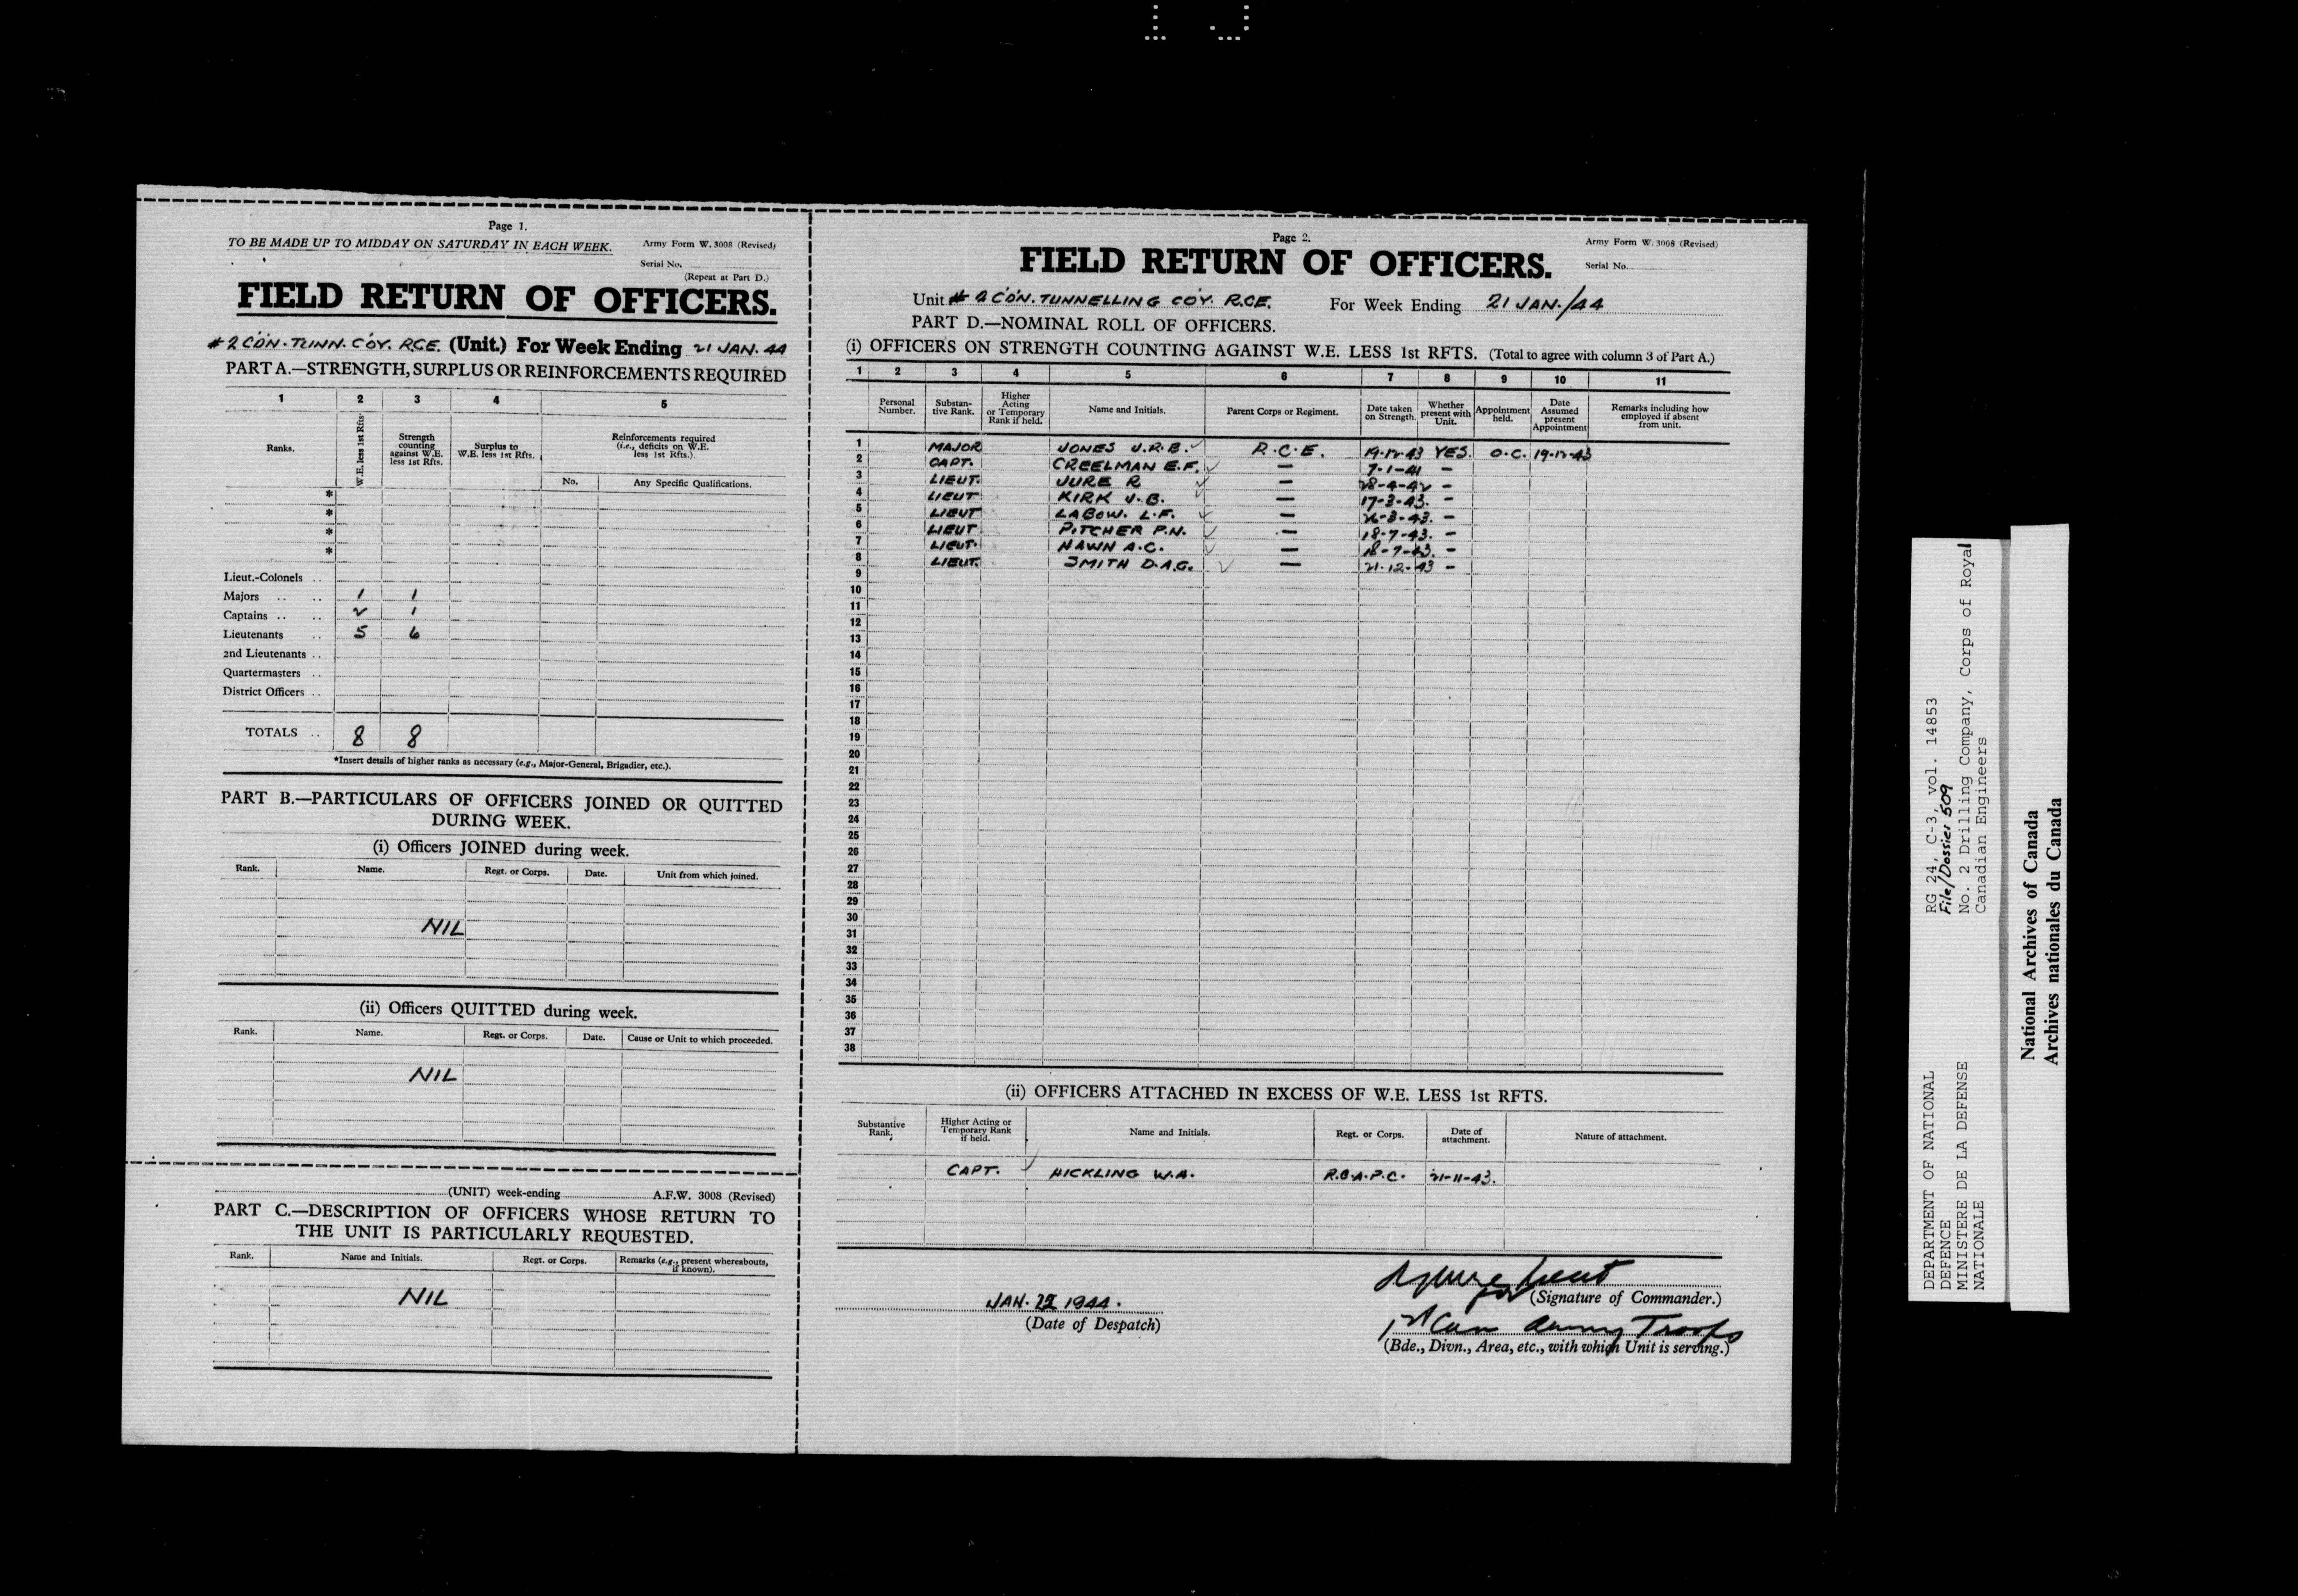 Page 1.
TO BE MADE UP TO MIDDAY ON SATURDAY IN EACH WEEK.
Army Form W. 3008 (Revised)
Serial No.
(Repeat at Part D.)
FIELD RETURN OF OFFICERS.
# 2 CDN. TUNN. COY. RCE. (Unit.) For Week Ending 21 JAN. 44
PART A.—STRENGTH, SURPLUS OR REINFORCEMENTS REQUIRED
1 2 3 4 5
Ranks.
W.E. less 1st Rfts.
Strength counting against W.E. less 1st Rfts.
Surplus to W.E. less 1st Rfts.
Reinforcements required (i.e., deficits on W.E. less 1st Rfts.).
No. Any Specific Qualifications.
*
*
*
*
Lieut.-Colonels ..
Majors .. .. 1 1
Captains .. .. 2 1
Lieutenants .. 5 6
2nd Lieutenants ..
Quartermasters ..
District Officers ..
TOTALS .. 8 8
*Insert details of higher ranks as necessary (e.g., Major-General, Brigadier, etc.).
PART B.—PARTICULARS OF OFFICERS JOINED OR QUITTED
DURING WEEK.
(i) Officers JOINED during week.
Rank. Name. Regt. or Corps. Date. Unit from which joined.
NIL
(ii) Officers QUITTED during week.
Rank. Name. Regt. or Corps. Date. Cause or Unit to which proceeded.
NIL
(UNIT) week-ending A.F.W. 3008 (Revised)
PART C.—DESCRIPTION OF OFFICERS WHOSE RETURN TO
THE UNIT IS PARTICULARLY REQUESTED.
Rank. Name and Initials. Regt. or Corps. Remarks (e.g., present whereabouts, if known).
NIL
Page 2.
Army Form W. 3008 (Revised)
FIELD RETURN OF OFFICERS.
Serial No.
Unit # 2 CDN. TUNNELLING COY. R.C.E. For Week Ending 21 JAN./44
PART D.—NOMINAL ROLL OF OFFICERS.
(i) OFFICERS ON STRENGTH COUNTING AGAINST W.E. LESS 1st RFTS. (Total to agree with column 3 of Part A.)
1 2 3 4 5 6 7 8 9 10 11
Personal Number.
Substan- tive Rank.
Higher Acting or Temporary Rank if held.
Name and Initials.
Parent Corps or Regiment.
Date taken on Strength.
Whether present with Unit.
Appointment held.
Date Assumed present Appointment
Remarks including how employed if absent from unit.
1 MAJOR JONES J.R.B. R.C.E. 19-12-43 YES. O.C. 19-12-43
2 CAPT. CREELMAN E.F. — 7-1-41 —
3 LIEUT. JURE R — 28-4-42 —
4 LIEUT KIRK J.B. — 17-3-43. —
5 LIEUT LABOW. L.F. — 26-3-43. —
6 LIEUT PITCHER P.N. — 18-7-43. —
7 LIEUT. HAWN A.C. — 18-7-43. —
8 LIEUT. SMITH D.A.G. — 21-12-43 —
9
10
11
12
13
14
15
16
17
18
19
20
21
22
23
24
25
26
27
28
29
30
31
32
33
34
35
36
37
38
(ii) OFFICERS ATTACHED IN EXCESS OF W.E. LESS 1st RFTS.
Substantive Rank.
Higher Acting or Temporary Rank if held.
Name and Initials.
Regt. or Corps.
Date of attachment.
Nature of attachment.
CAPT. HICKLING W.A. R.C.A.P.C. 21-11-43.
Lieut
for
(Signature of Commander.)
JAN. 1944.
(Date of Despatch)
1st Can Army Troops
(Bde., Divn., Area, etc., with which Unit is serving.)
DEPARTMENT OF NATIONAL
DEFENCE
MINISTERE DE LA DEFENSE
NATIONALE
RG 24, C-3, vol. 14853
File/Dossier 509
No. 2 Drilling Company, Corps of Royal
Canadian Engineers
National Archives of Canada
Archives nationales du Canada